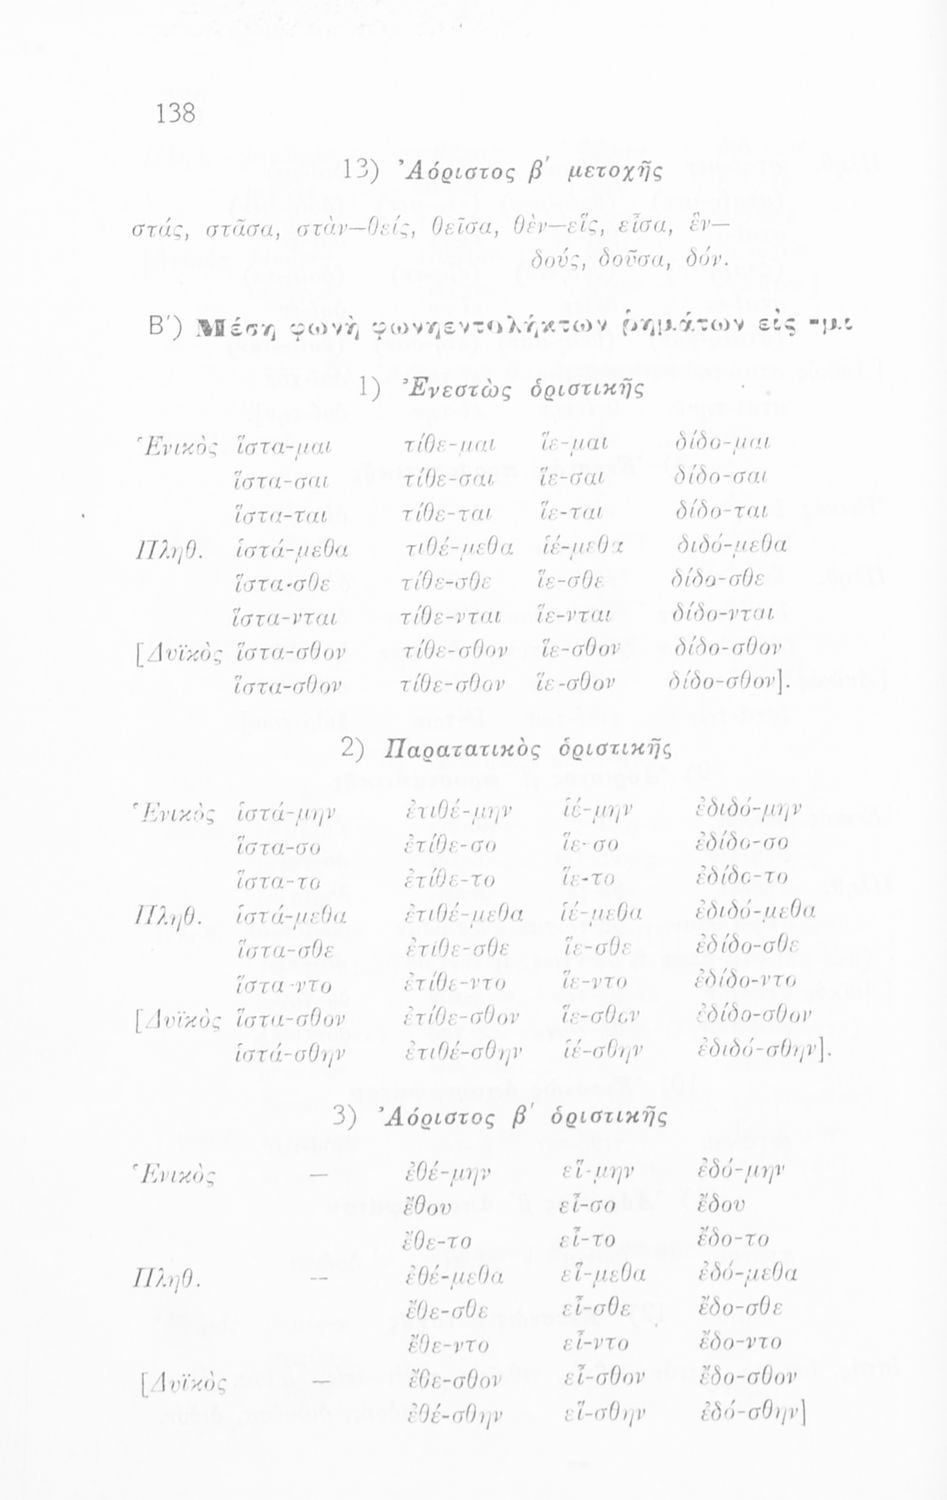 138
13) Ἀόριστος β΄ μετοχῆς
στάς, στᾶσα, στὰν—θείς, θεῖσα, θὲν—εἵς, εἷσα, ἓν—
δούς, δοῦσα, δόν.
Β΄) Μέση φωνὴ φωνηεντολήκτων ῥημάτων εἰς -μι
1) Ἐνεστὼς ὁριστικῆς
Ἑνικὸς ἵστα-μαι τίθε-μαι ἵε-μαι δίδο-μαι
ἵστα-σαι τίθε-σαι ἵε-σαι δίδο-σαι
ἵστα-ται τίθε-ται ἵε-ται δίδο-ται
Πληθ. ἱστά-μεθα τιθέ-μεθα ἱέ-μεθα διδό-μεθα
ἵστα-σθε τίθε-σθε ἵε-σθε δίδο-σθε
ἵστα-νται τίθε-νται ἵε-νται δίδο-νται
[Δυϊκὸς ἵστα-σθον τίθε-σθον ἵε-σθον δίδο-σθον
ἵστα-σθον τίθε-σθον ἵε-σθον δίδο-σθον].
2) Παρατατικὸς ὁριστικῆς
Ἑνικὸς ἱστά-μην ἐτιθέ-μην ἱέ-μην ἐδιδό-μην
ἵστα-σο ἐτίθε-σο ἵε-σο ἐδίδο-σο
ἵστα-το ἐτίθε-το ἵε-το ἐδίδο-το
Πληθ. ἱστά-μεθα ἐτιθέ-μεθα ἱέ-μεθα ἐδιδό-μεθα
ἵστα-σθε ἐτίθε-σθε ἵε-σθε ἐδίδο-σθε
ἵστα-ντο ἐτίθε-ντο ἵε-ντο ἐδίδο-ντο
[Δυϊκὸς ἵστα-σθον ἐτίθε-σθον ἵε-σθον ἐδίδο-σθον
ἱστά-σθην ἐτιθέ-σθην ἱέ-σθην ἐδιδό-σθην].
3) Ἀόριστος β΄ ὁριστικῆς
Ἑνικὸς — ἐθέ-μην εἵ-μην ἐδό-μην
ἔθου εἷ-σο ἔδου
ἔθε-το εἷ-το ἔδο-το
Πληθ. — ἐθέ-μεθα εἵ-μεθα ἐδό-μεθα
ἔθε-σθε εἷ-σθε ἔδο-σθε
ἔθε-ντο εἷ-ντο ἔδο-ντο
[Δυϊκὸς — ἔθε-σθον εἷ-σθον ἔδο-σθον
ἐθέ-σθην εἵ-σθην ἐδό-σθην]